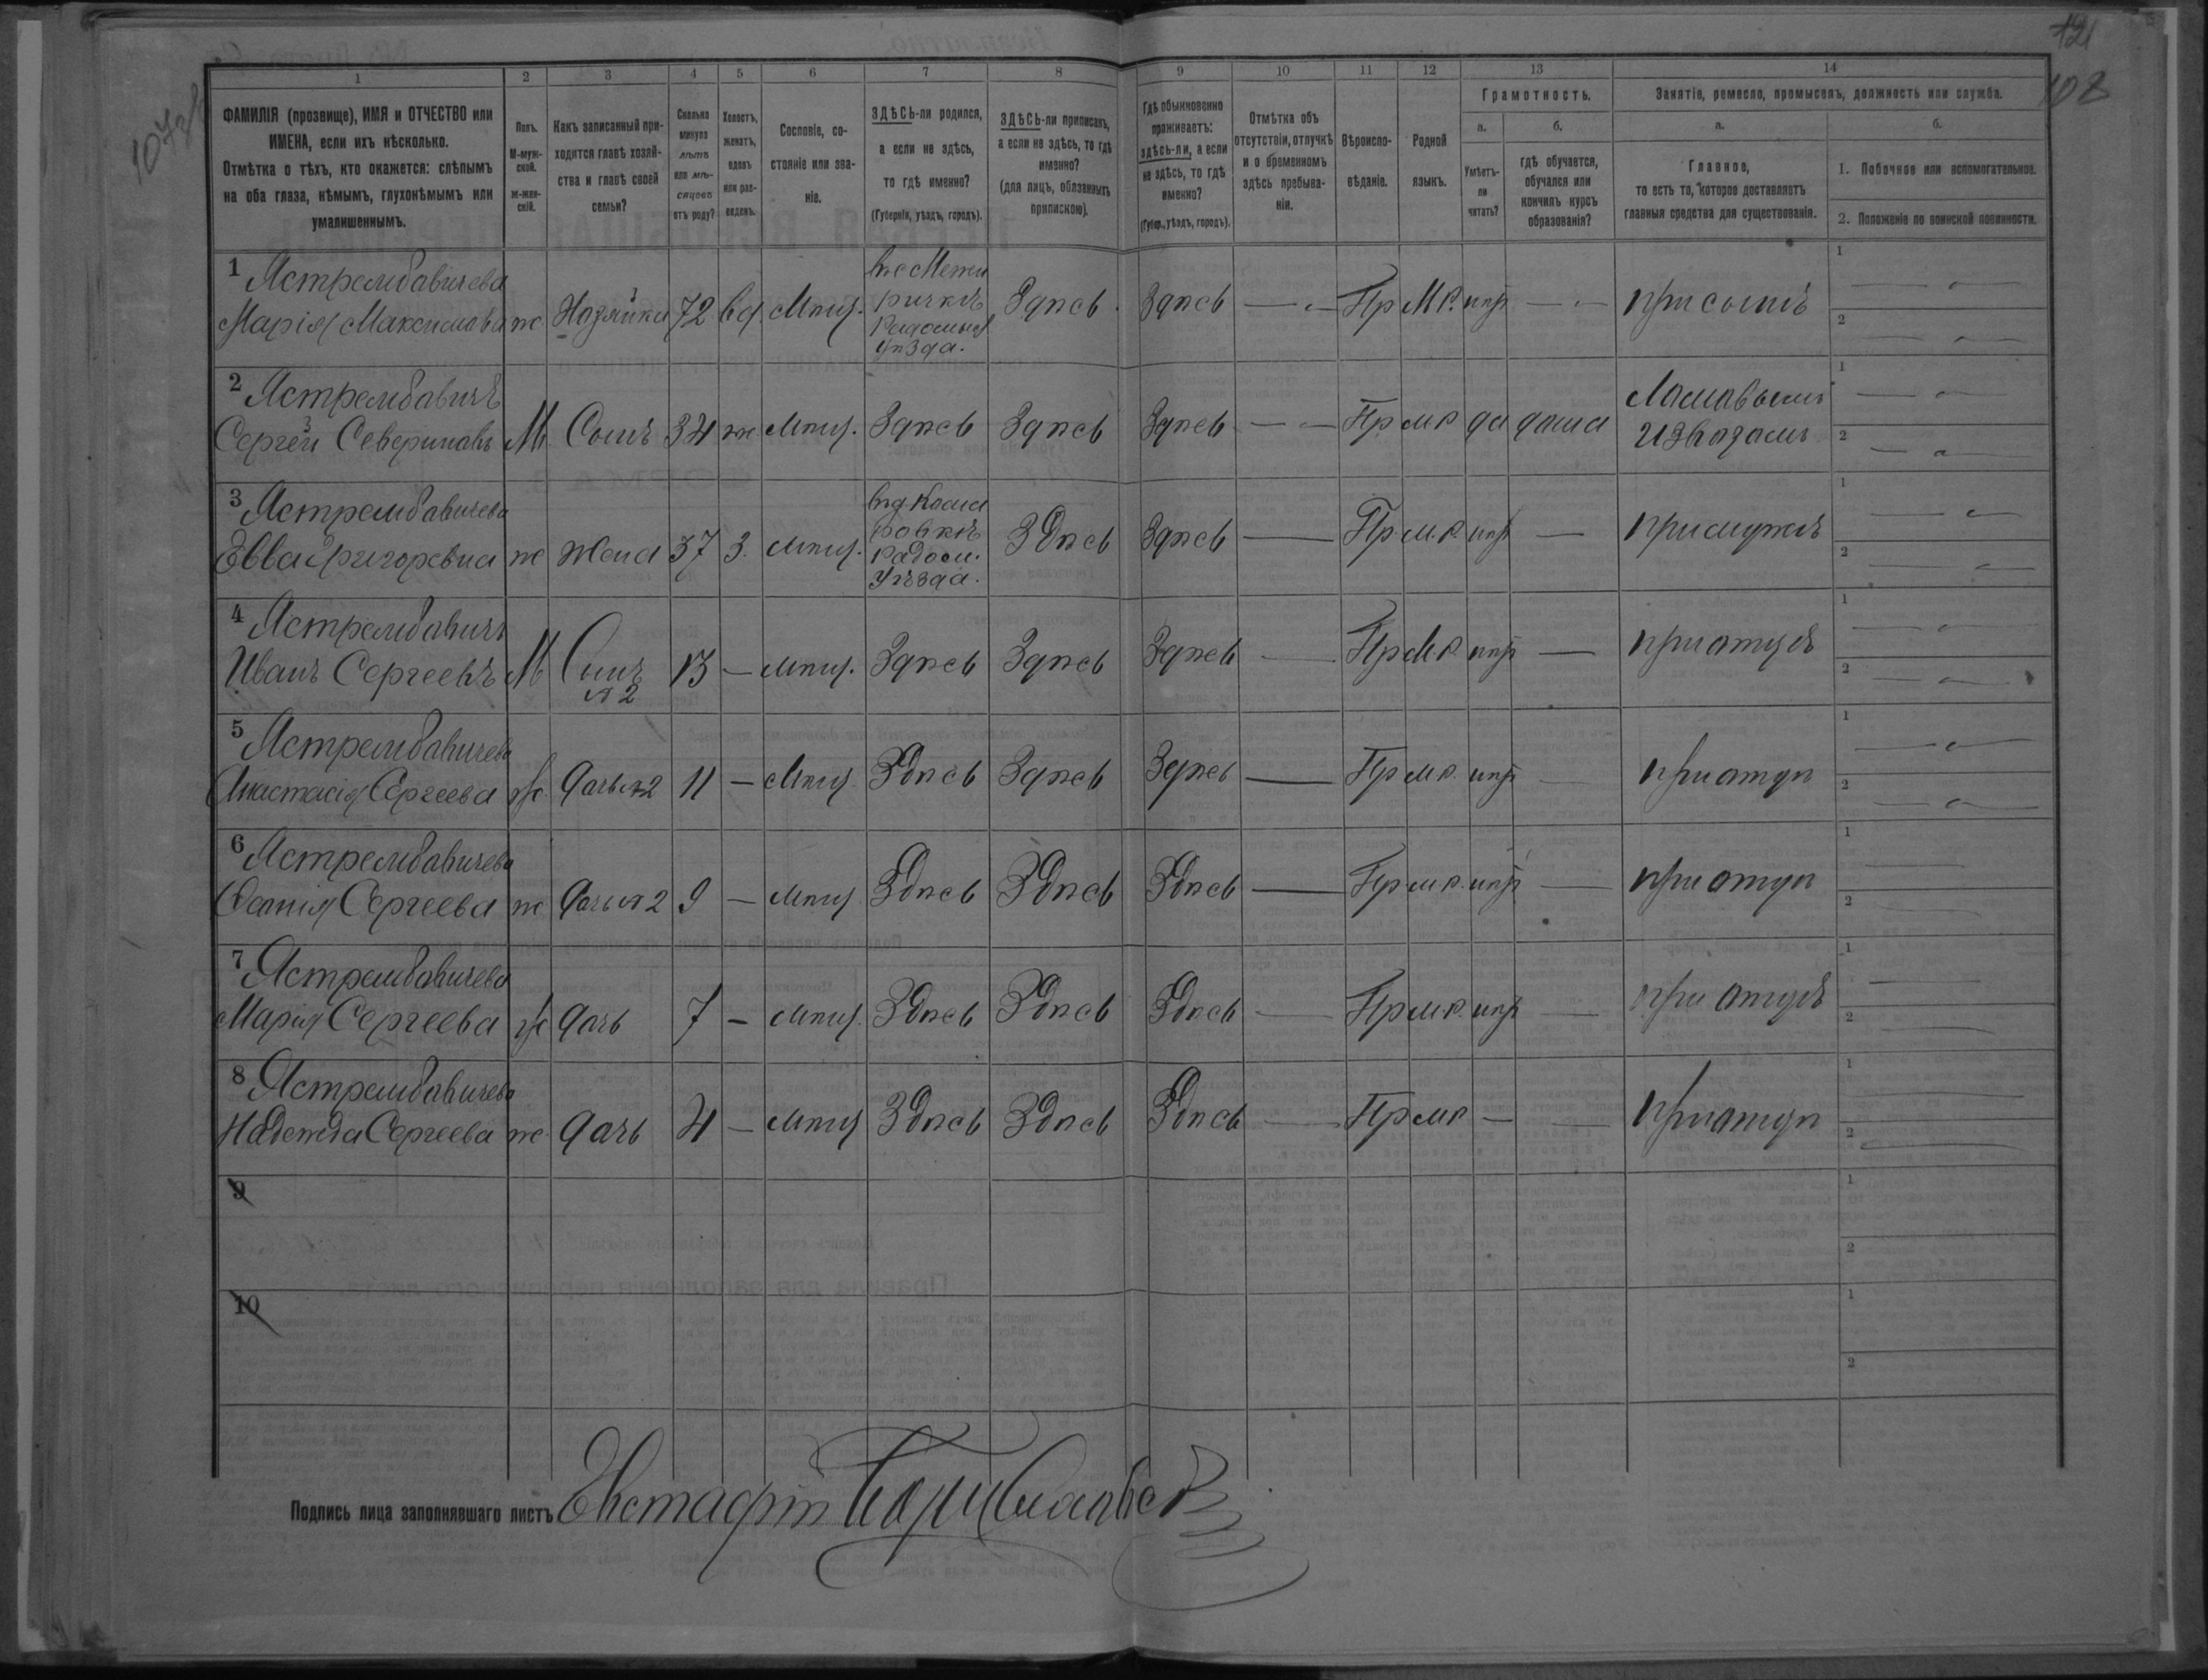 121
108
1 2 3 4 5 6 7 8 9 10 11 12 13 14
ФАМИЛІЯ (прозвище), ИМЯ и ОТЧЕСТВО или
ИМЕНА, если ихъ нѣсколько.
Отмѣтка о тѣхъ, кто окажется: слѣпымъ
на оба глаза, нѣмымъ, глухонѣмымъ или
умалишеннымъ.
Полъ.
М-муж-
ской.
Ж-жен-
скій.
Какъ записанный при-
ходится главѣ хозяй-
ства и главѣ своей
семьи?
Сколько
минуло
лѣтъ
или мѣ-
сяцевъ
отъ роду?
Холостъ,
женатъ,
вдовъ
или раз-
веденъ.
Сословіе, со-
стояніе или зва-
ніе.
ЗДѢСЬ-ли родился,
а если не здѣсь,
то гдѣ именно?
(Губернія, уѣздъ, городъ).
ЗДѢСЬ-ли приписанъ,
а если не здѣсь, то гдѣ
именно?
(для лицъ, обязанныхъ
припискою).
Гдѣ обыкновенно
проживаетъ:
здѣсь-ли, а если
не здѣсь, то гдѣ
именно?
(Губер., уѣздъ, городъ).
Отмѣтка объ
отсутствіи, отлучкѣ
и о временномъ
здѣсь пребыва-
ніи.
Вѣроиспо-
вѣданіе.
Родной
языкъ.
Грамотность.
а.
Умѣетъ-
ли
читать?
б.
гдѣ обучается,
обучался или
кончилъ курсъ
образованія?
Занятіе, ремесло, промыселъ, должность или служба.
а.
Главное,
то есть то, которое доставляетъ
главныя средства для существованія.
б.
1. Побочное или вспомогательное.
2. Положеніе по воинской повинности.
1 Ястрембавичева
Марія Максимова ж Хозяйка 72 вд. Мѣщ.
Радомысл
Уѣзда.
Здѣсь Здѣсь — Пр М.Р. нѣт — при сынѣ
1
2
2 Ястрембавичъ
Сергей Севериновъ М Сынъ 34 ж. Мѣщ. Здѣсь Здѣсь Здѣсь — Пр м р да дома Ломовымъ
Извозомъ
1
2
3 Ястрембавичева
Евва Григоревна ж Жена 37 З. мѣщ.
Радом.
Уѣзда.
Здѣсь Здѣсь — Пр. м.р. нѣт — при мужѣ
1
2
4 Ястрембавичъ
Иванъ Сергеевъ М Сынъ
№ 2
13 — мѣщ. Здѣсь Здѣсь Здѣсь — Пр М.Р нѣт — при отцѣ
1
2
5 Ястрембавичева
Анастасія Сергеева ж Дочь №2 11 — Мѣщ Здѣсь Здѣсь Здѣсь — Пр м.р. нѣт — при отцѣ
1
2
6 Ястрембавичева
Сергеева ж Дочь №2 9 — мѣщ Здѣсь Здѣсь Здѣсь — Пр м.р. нѣт — при отцѣ
1
2
7 Ястрембавичева
Марія Сергеева ж Дочь 7 — мѣщ. Здѣсь Здѣсь Здѣсь — Пр м.р. нѣт — при отцѣ
1
2
8 Ястрембавичева
Надежда Сергеева ж Дочь 4 — мѣщ Здѣсь Здѣсь Здѣсь — Пр м.р — — при отцѣ
1
2
9
1
2
10
1
2
Подпись лица заполнявшаго листъ